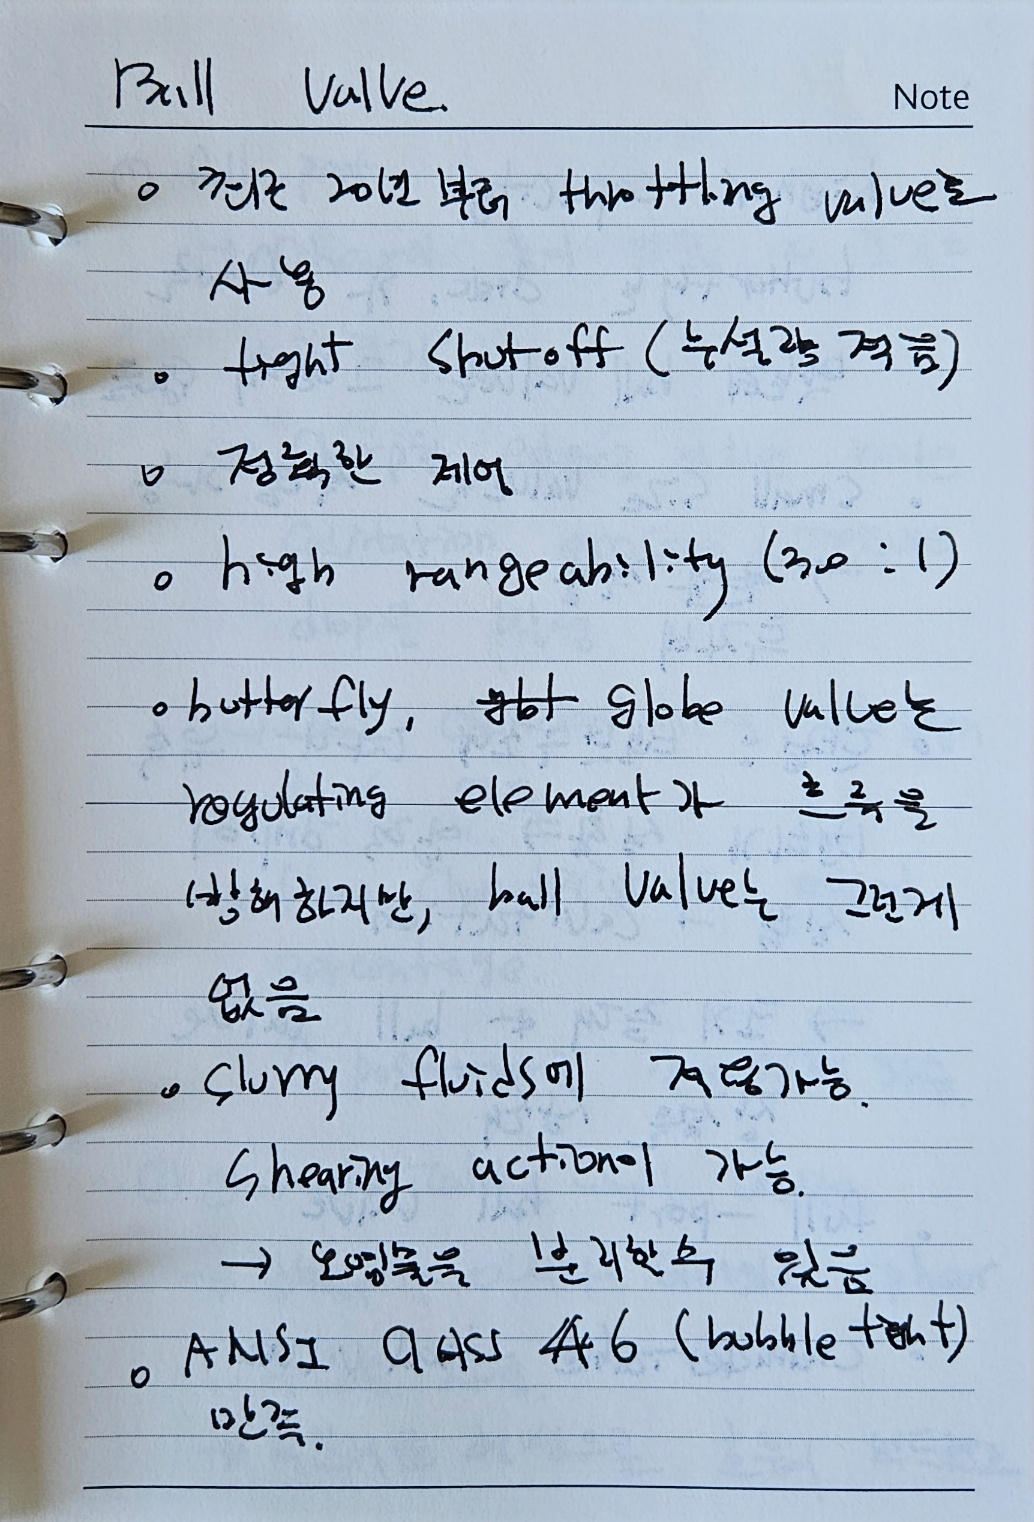 Ball Valve.
Note
최근 20년 부터 throttling valve로
사용
tight shutoff (누설량 적음)
정확한 제어
high rangeability (30 : 1)
butterfly, globe valve는
regulating element가 흐름을
방해하지만, ball valve는 그런게
없음
slurry fluids에 적용가능.
shearing action이 가능.
→ 오염물을 분리할수 있음
ANSI class 6 (bubble tight)
만족.